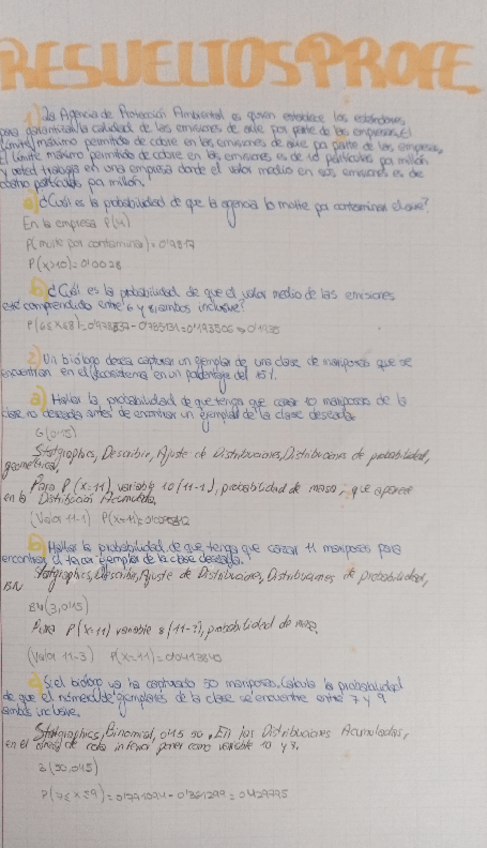 RESUELTOS PROFE
1) La Agencia de Protección Ambiental es quien establece los estándares
para garantizar la calidad de las emisiones de aire por parte de las empresas. El
límite máximo permitido de cobre en las emisiones de aire pa parte de las empresas,
El límite máximo permitido de cobre en las emisiones es de 10 partículas por millón
y usted trabaja en una empresa donde el valor medio en sus emisiones es de
cuatro partículas por millón.
a) ¿Cuál es la probabilidad de que la agencia lo multe por contaminar el aire?
En la empresa P(4)
P(multe por contaminar)=
P(x>10)=0'0028
b) ¿Cuál es la probabilidad de que el valor medio de las emisiones
esté comprendido entre 6 y 8, ambos inclusive?
P(6≤x≤8)=
2) Un biólogo desea capturar un ejemplar de una clase de mariposas que se
encuentran en el ecosistema en un porcentaje del 15%.
a) Hallar la probabilidad de que tenga que cazar 10 mariposas de la
clase no deseada antes de encontrar un ejemplar de la clase deseada
G(0'15)
Statgraphics, Describir, Ajuste de Distribuciones, Distribuciones de probabilidad,
geométrica,
Para P(x=11), variable 10 (11-1), probabilidad de masa, que aparece
en la Distribución Acumulada,
(Valor 11-1) P(x=11)=
b) Hallar la probabilidad de que tenga que cazar 11 mariposas para
encontrar el tercer ejemplar de la clase deseada.
Statgraphics, Describir, Ajuste de Distribuciones, Distribuciones de probabilidad,
BN
BN(3,0'15)
Para P(x=11) variable 8 (11-3), probabilidad de masa,
(Valor 11-3) P(x=11)=
Si el biólogo ya ha capturado 50 mariposas. Calcula la probabilidad
de que el número de ejemplares de la clase se encuentre entre 7 y 9
ambos inclusive.
Statgraphics, Binomial, 0'15 50. En las Distribuciones Acumuladas,
en el de poner como variable 10 y 7.
B(50,0'15)
P(7≤x≤9)=